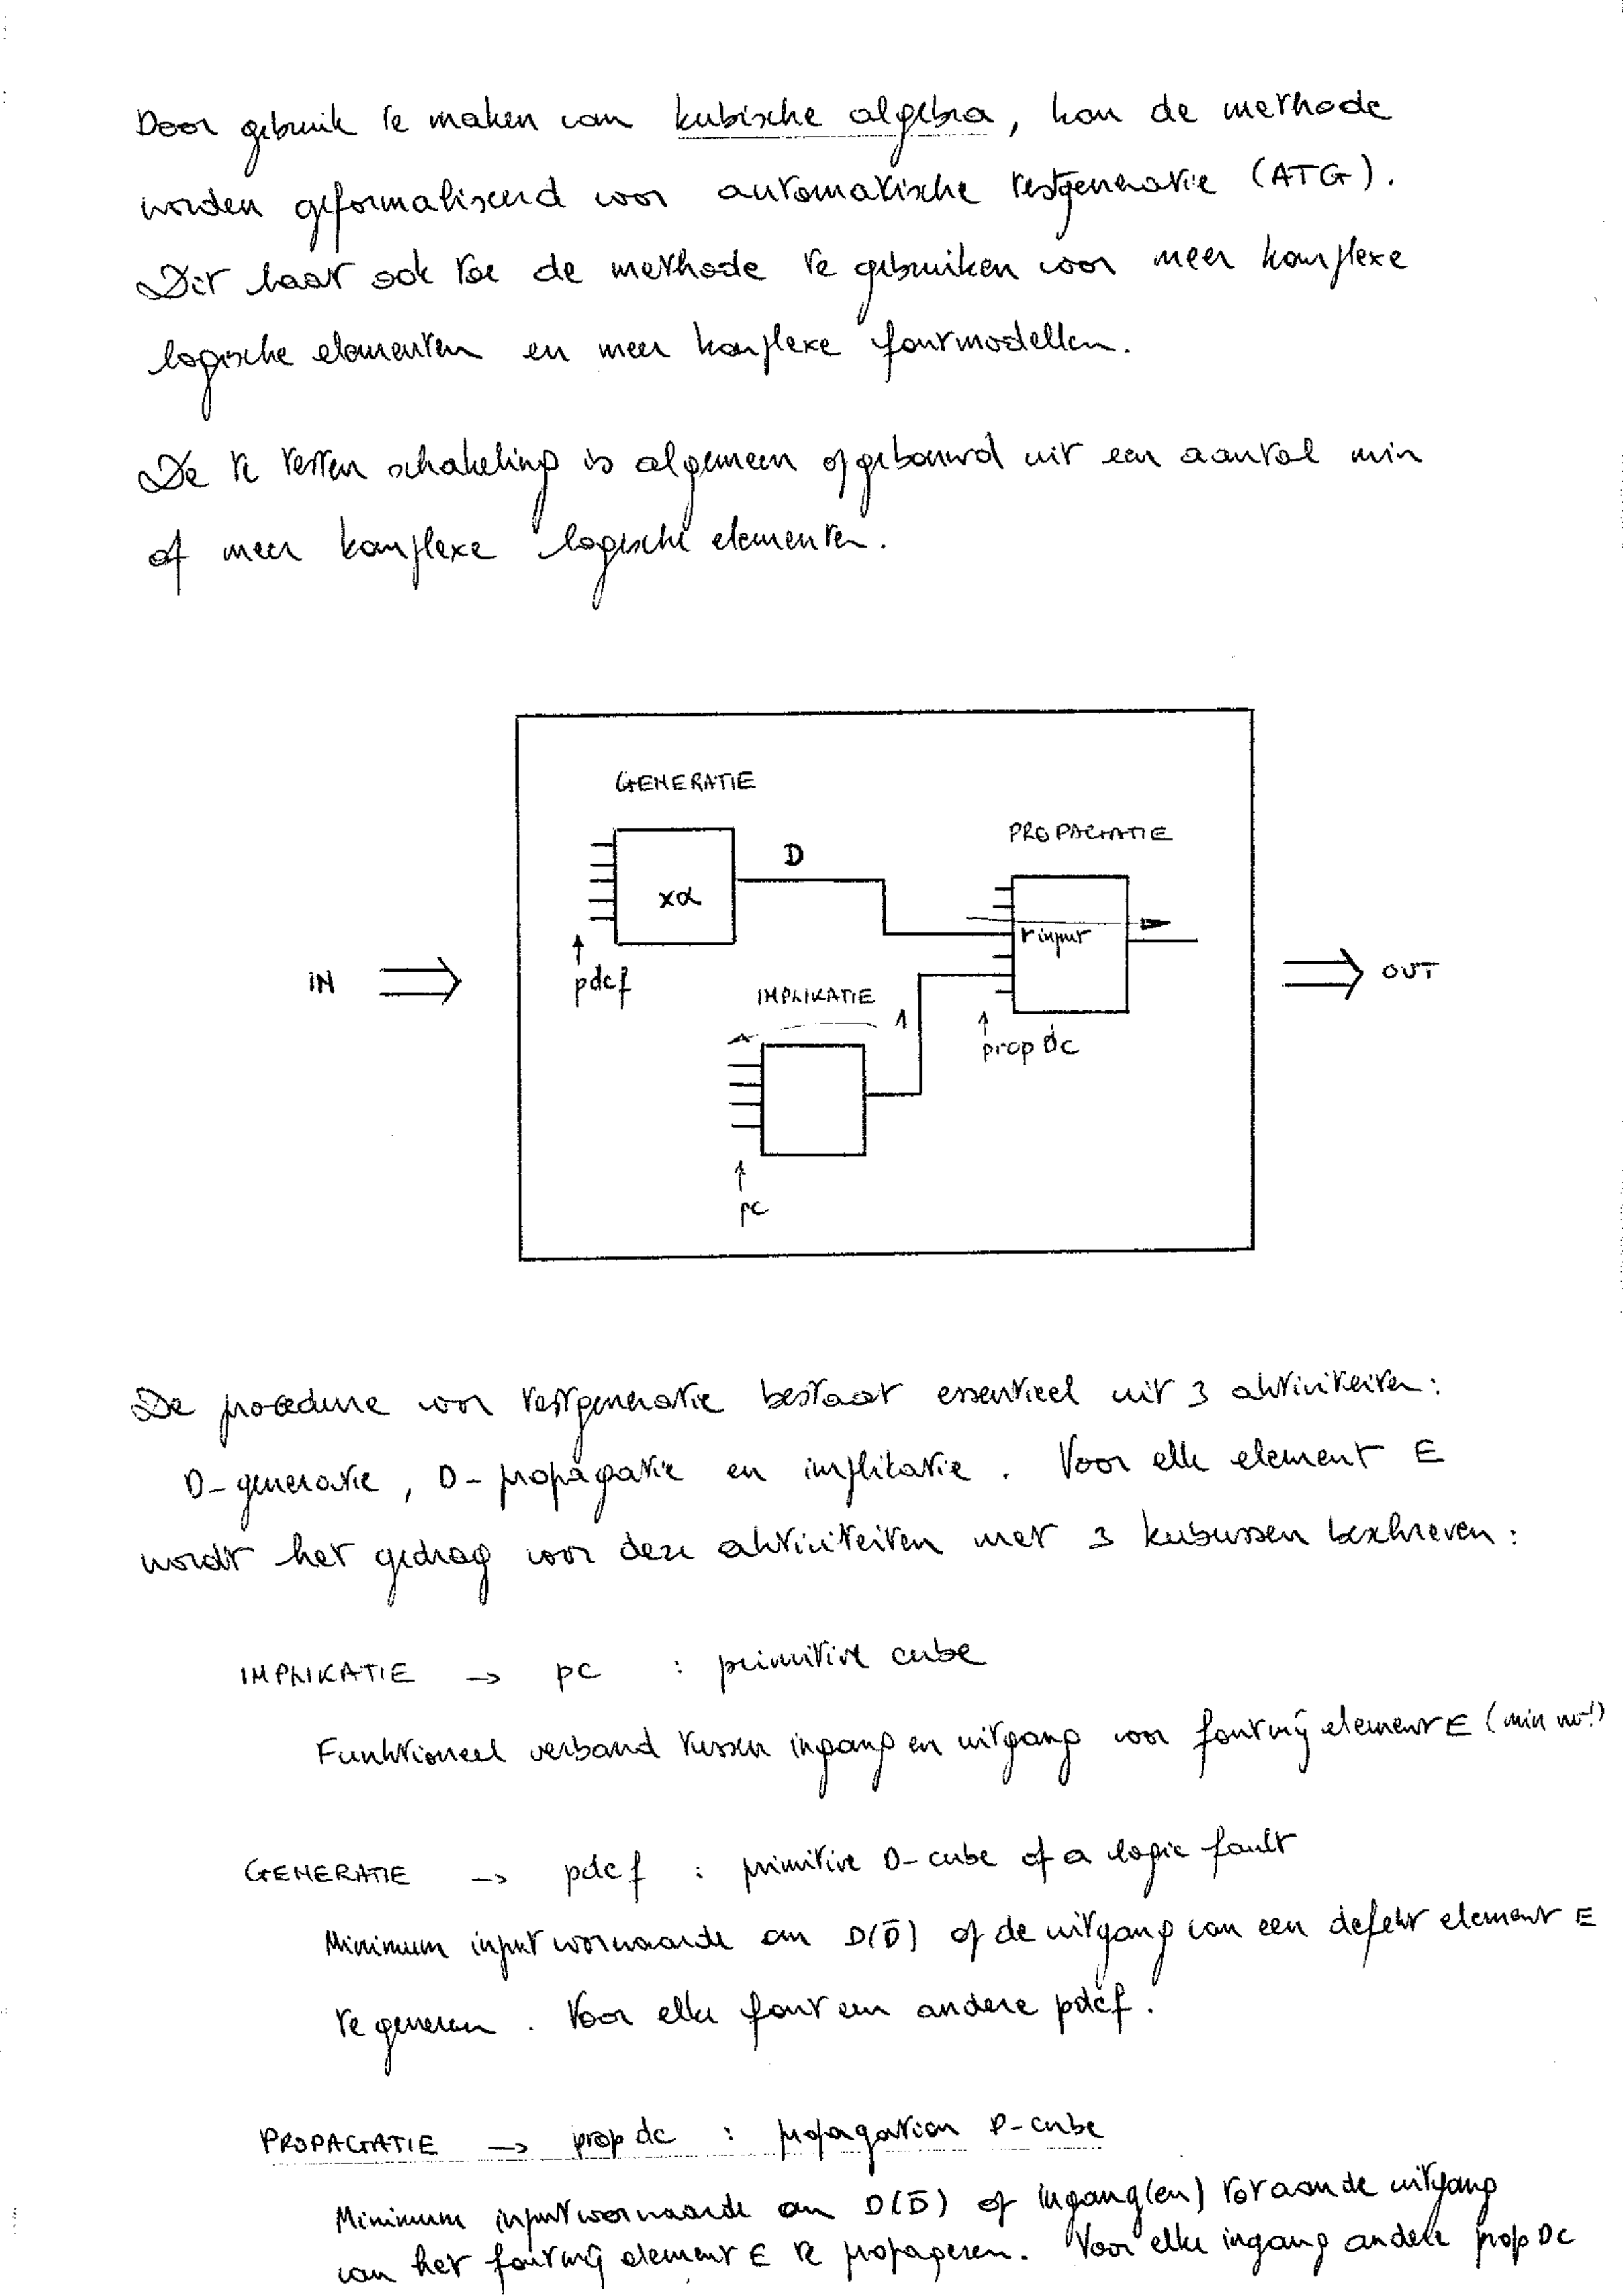 Door gebruik te maken van kubische algebra, kan de methode
worden geformaliseerd voor automatische testgeneratie (ATG).
Dit laat ook toe de methode te gebruiken voor meer komplexe
logische elementen en meer komplexe foutmodellen.
De te testen schakeling is algemeen opgebouwd uit een aantal min
of meer komplexe logische elementen.
GENERATIE
PROPAGATIE
D
xα
r input
IN
pdcf
IMPLIKATIE
1
OUT
prop Dc
pc
De procedure voor testgeneratie bestaat essentieel uit 3 aktiviteiten:
D-generatie, D-propagatie en implikatie. Voor elk element E
wordt het gedrag voor deze aktiviteiten met 3 kubussen beschreven:
IMPLIKATIE → pc : primitive cube
Funktioneel verband tussen ingang en uitgang voor foutvrij element E (min
GENERATIE → pdcf : primitive D-cube of a logic fault
Minimum input voorwaarde om D(D̄) op de uitgang van een defekt element E
te generen. Voor elke fout een andere pdcf.
PROPAGATIE → prop dc : propagation D-cube
Minimum input voorwaarde om D(D̄) op ingang(en) tot aan de uitgang
van het foutvrij element E te propageren. Voor elke ingang andere prop DC